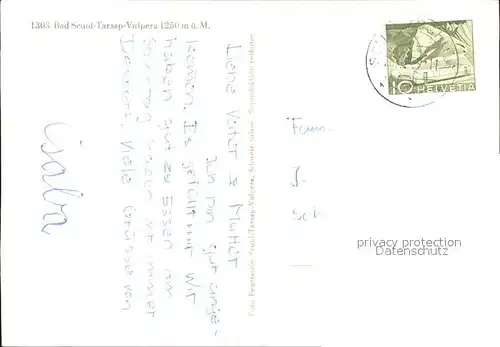 1303 Bad Scuol-Tarasp-Vulpera 1250 m ü. M.
Liebe Vater & Mutter
Ich bin gut ange-
kommen. Es gefällt mir Wir
haben gut zu Essen am
Sonntag haben wir immer
Dessert. Viele Grüsse von
Foto Feuerstein Scuol-Tarasp-Vulpera, Schweiz suisse Reproduktion verboten
10 HELVETIA
Fam
J.
Sc
privacy protection
Datenschutz